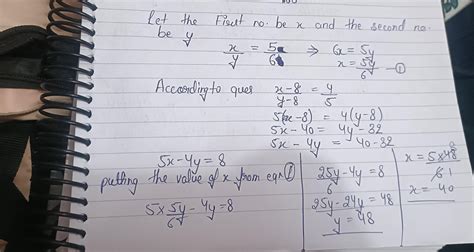 Let the Fisrt no. be x and the second no.
be y
x/y = 5/6 ⇒ 6x = 5y
x = 5y/6 — ①
According to ques x-8/y-8 = 4/5
5(x-8) = 4(y-8)
5x-40 = 4y-32
5x - 4y = 40-32
5x-4y=8
putting the value of x from eqn ①
5x5y/6 - 4y=8
25y/6 - 4y = 8
25y-24y = 48
y = 48
x = 5x48/6
x = 40